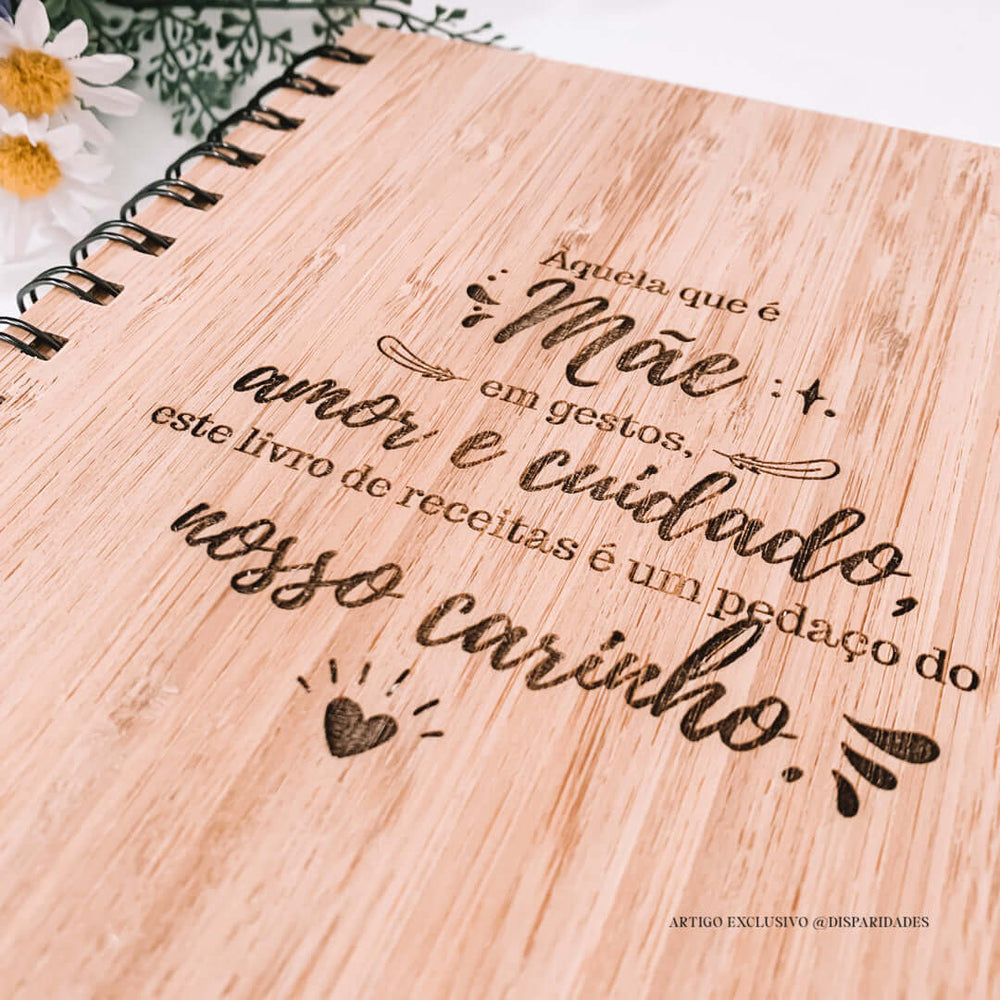 Àquela que é
Mãe
em gestos,
amor e cuidado,
este livro de receitas é um pedaço do
nosso carinho.
ARTIGO EXCLUSIVO @DISPARIDADES